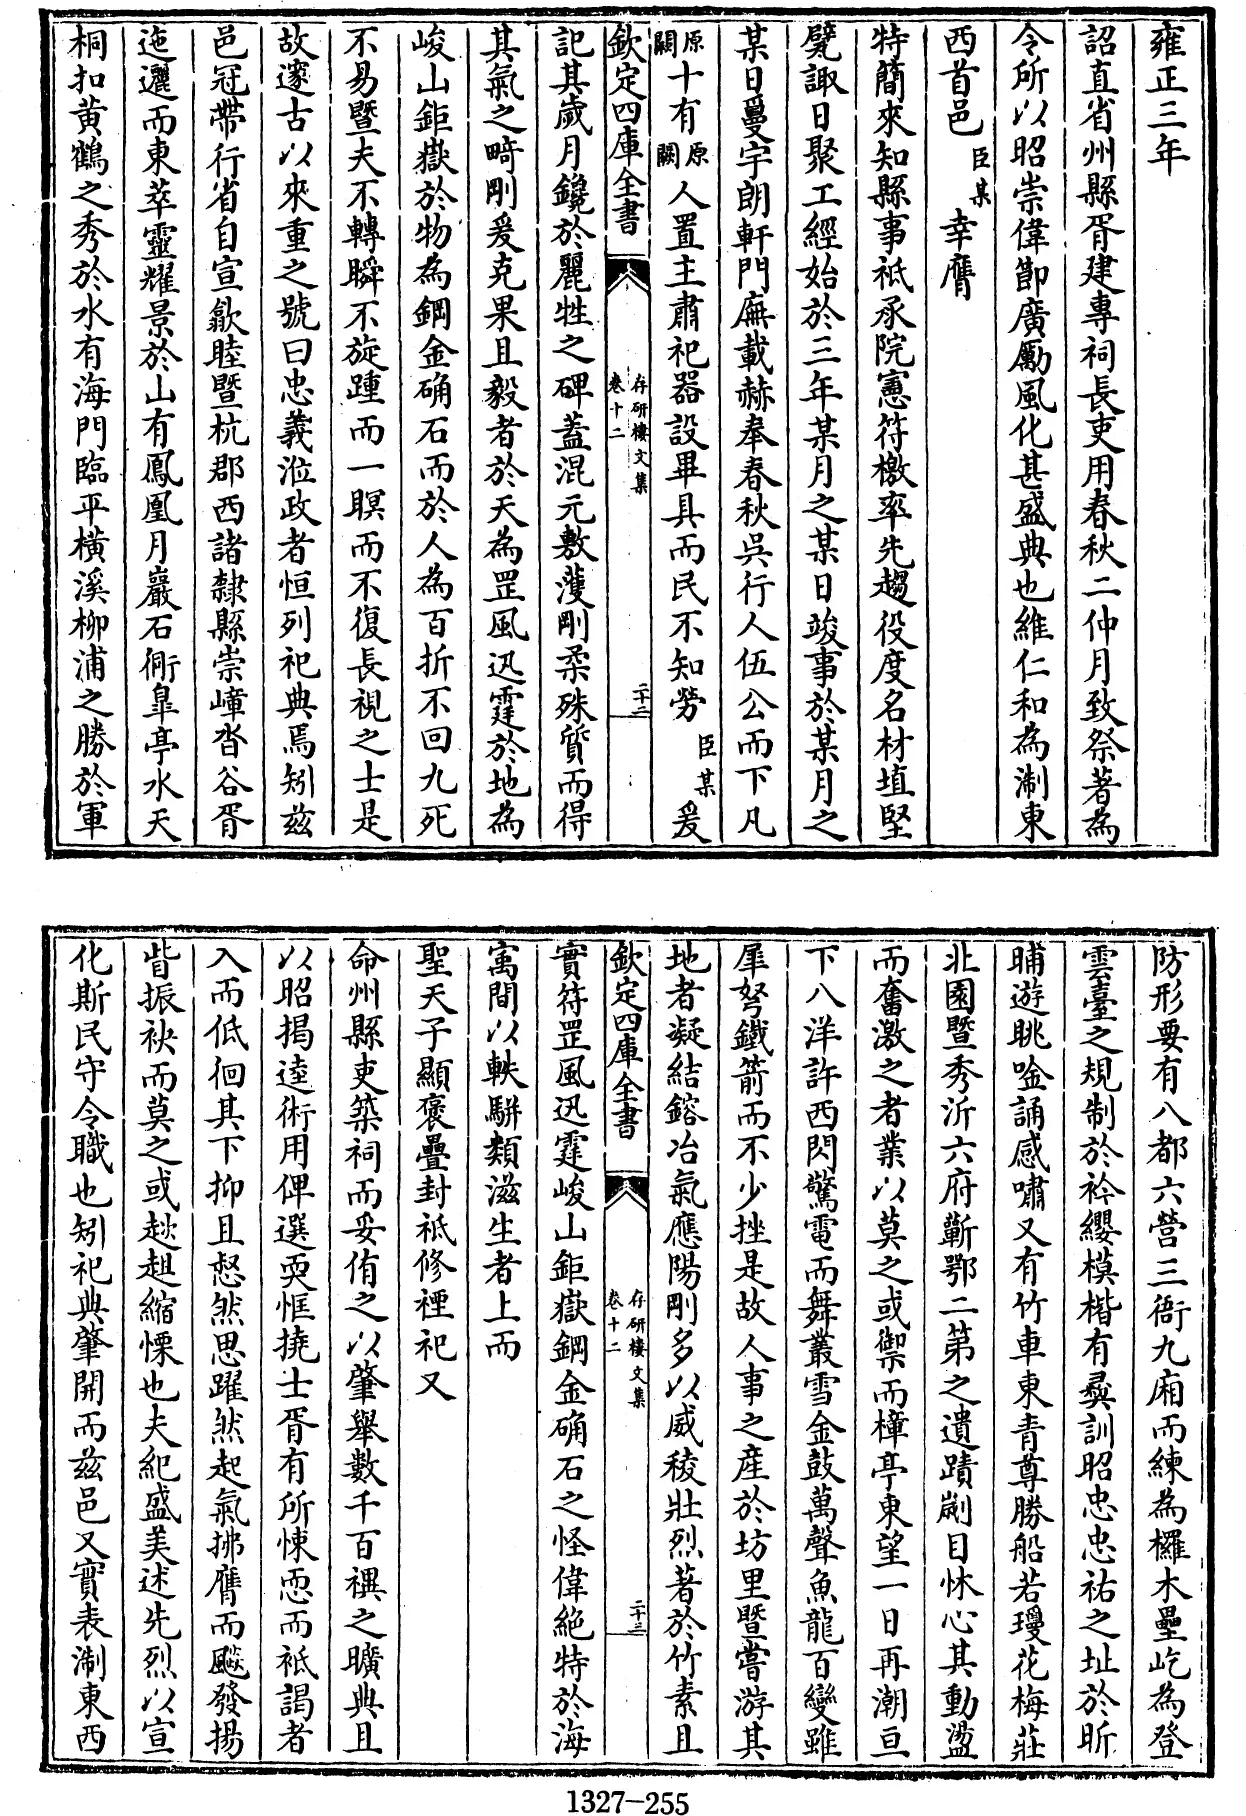 雍正三年
詔直省州縣胥建專祠長吏用春秋二仲月致祭著為
令所以昭崇偉節廣勵風化甚盛典也維仁和為淛東
西首邑臣某幸膺
特簡來知縣事祗承院憲符檄率先趨役度名材埴堅
甓諏日聚工經始於三年某月之某日竣事於某月之
某日曼宇朗軒門廡載赫奉春秋吳行人伍公而下凡
原闕十有原闕人置主肅祀器設畢具而民不知勞臣某爰
欽定四庫全書 存研樓文集 卷十二 二十二
記其歲月鑱於麗牲之碑蓋混元敷蒦剛柔殊質而得
其氣之畸剛爰克果且毅者於天為罡風迅霆於地為
峻山鉅嶽於物為鋼金确石而於人為百折不回九死
不易暨夫不轉瞬不旋踵而一瞑而不復長視之士是
故邃古以來重之號曰忠義涖政者恒列祀典焉矧兹
邑冠帶行省自宣歙睦暨杭郡西諸隸縣崇嶂沓谷胥
迤邐而東萃靈耀景於山有鳳凰月巖石衕臯亭水天
桐扣黃鶴之秀於水有海門臨平橫溪柳浦之勝於軍
防形要有八都六營三衙九廂而練為欏木壘屹為登
雲臺之規制於衿纓模楷有彞訓昭忠忠祐之址於昕
晡遊眺唫誦感嘯又有竹車東青尊勝船若瓊花梅莊
北園暨秀沂六府蘄鄂二第之遺蹟劌目怵心其動盪
而奮激之者業以莫之或禦而樟亭東望一日再潮亘
下八洋許西閃驚電而舞叢雪金鼓萬聲魚龍百變雖
犀弩鐵箭而不少挫是故人事之産於坊里暨嘗游其
地者凝結鎔冶氣應陽剛多以威稜壯烈著於竹素且
欽定四庫全書 存研樓文集 卷十二 二十三
實符罡風迅霆峻山鉅嶽鋼金确石之怪偉絶特於海
寓間以軼駢類滋生者上而
聖天子顯褒疊封祗修禋祀又
命州縣吏築祠而妥侑之以肇舉數千百禩之曠典且
以昭揭逵術用俾選耎恇撓士胥有所悚恧而祗謁者
入而低徊其下抑且惄然思躍然起氣拂膺而飈發揚
眥振袂而莫之或趑趄縮慄也夫紀盛美述先烈以宣
化斯民守令職也矧祀典肇開而兹邑又實表淛東西
1327-255